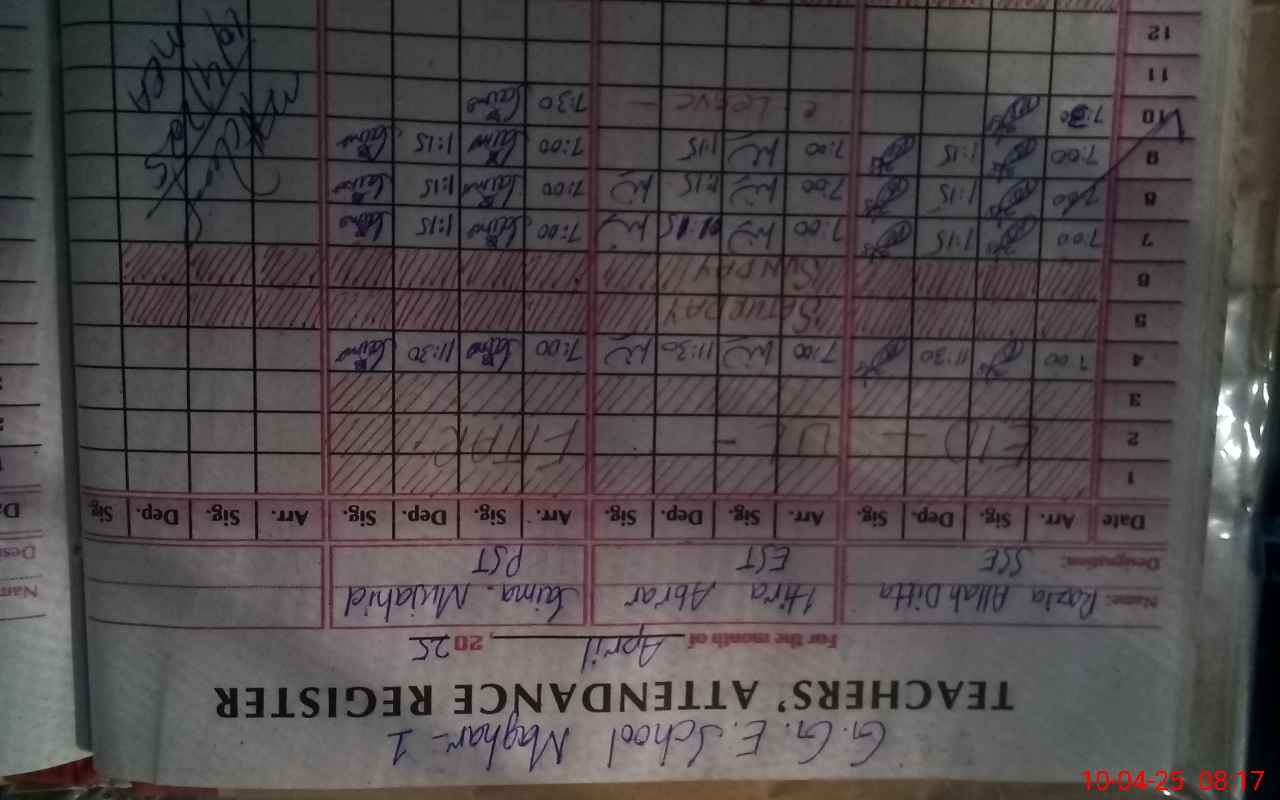 G.G.E. School Maghar-1
TEACHERS' ATTENDANCE REGISTER
For the month of April, 2025
Name: Razia Allah Ditta Hira Abrar Saima Mujahid
Designation: SSE EST PST
Date Arr. Sig. Dep. Sig. Arr. Sig. Dep. Sig. Arr. Sig. Dep. Sig. Arr. Sig. Dep. Sig.
1
2 EID - UL - FITAR
3
4 7:00 11:30 7:00 11:30 7:00 Saima 11:30 Saima
5 SATURDAY
6 SUNDAY
7 7:00 1:15 7:00 01:15 7:00 Saima 1:15 Saima
8 7:00 1:15 7:00 1:15 7:00 Saima 1:15 Saima
9 7:00 1:15 7:00 1:15 7:00 Saima 1:15 Saima
10 7:30 Leave 7:30 Saima
11
12
MEA
10-04-25 08:17